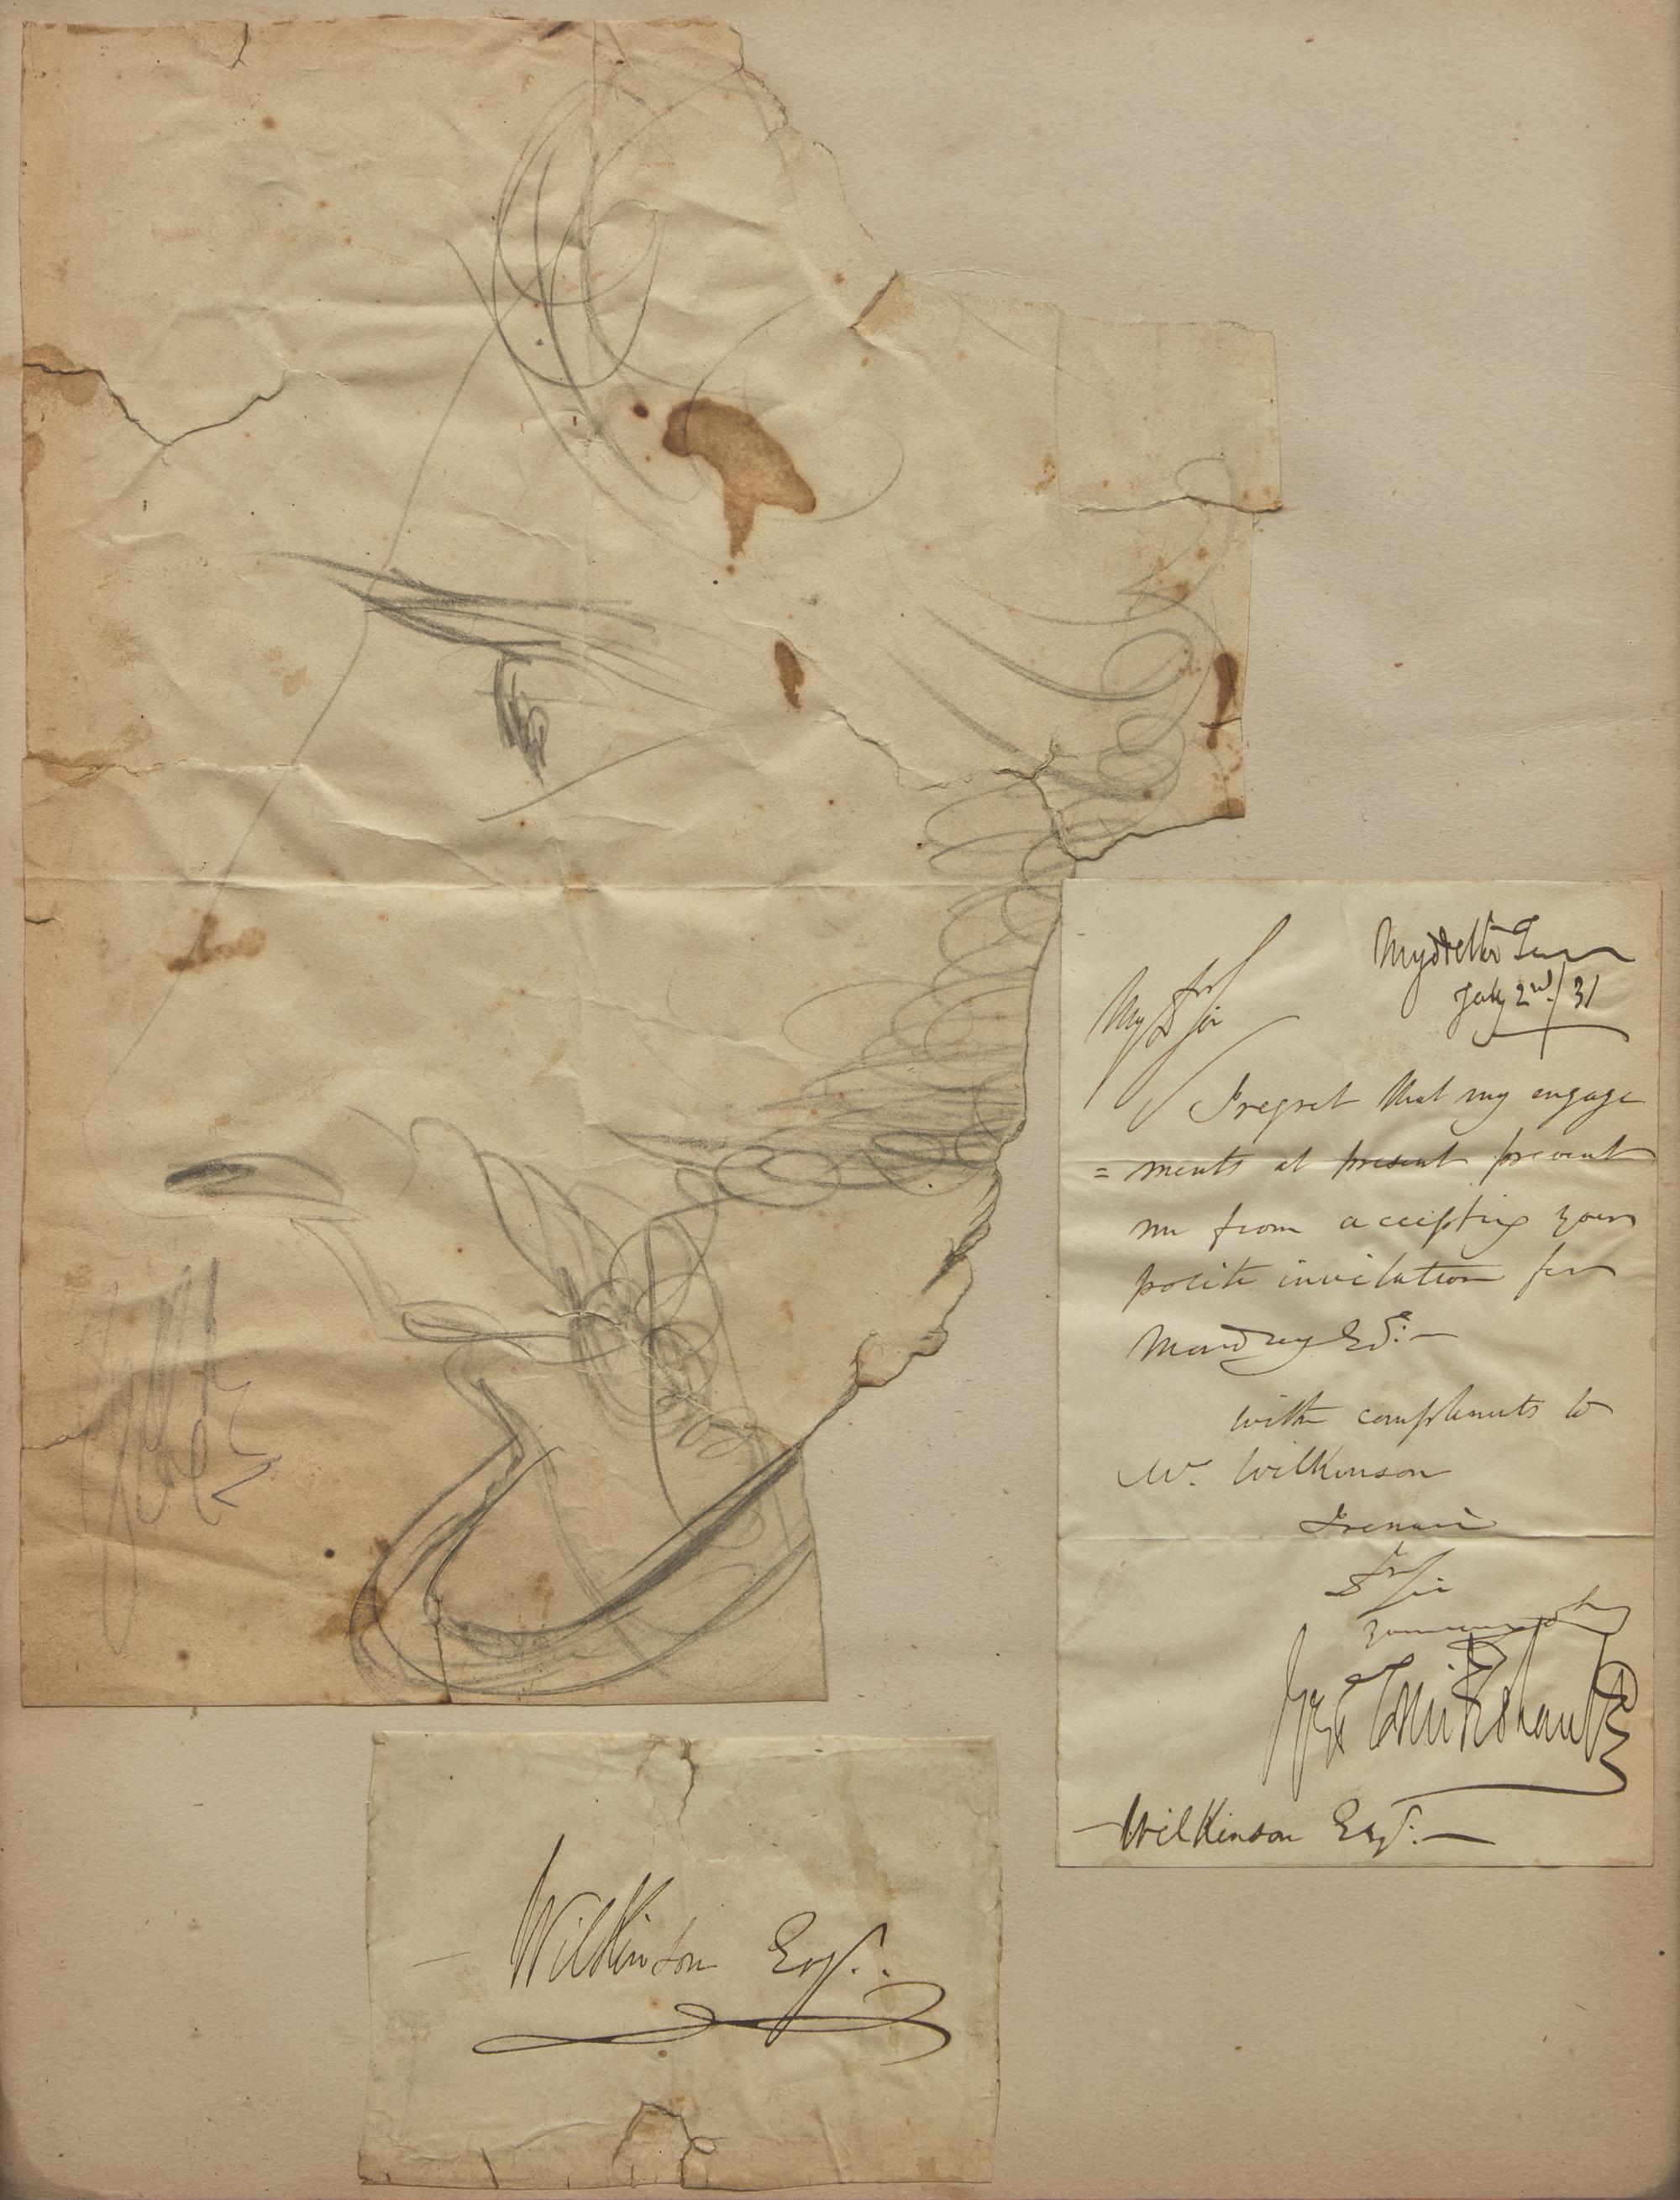 My Dr Sir
July 2nd/31
I regret that my engage
= ments at present prevent
me from accepting your
polite invitation for
Monday
with compliments to
Wilkinson
I remain
Dr Sir
Geo Cruikshank
Wilkinson Esqr. —
— Wilkinson Esqr.